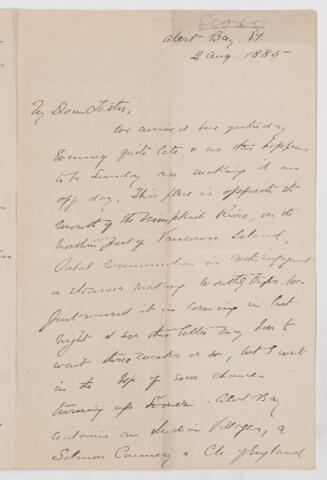 Alert Bay V.I.
2 Aug. 1885
My Dear Father,
We arrived here yesterday
evening quite late, & as this happens
to be Sunday are making it an
off day. This place is opposite the
mouth of the Nimpkish River, on the
northern part of Vancouver Island.
Postal Communication is not frequent
a steamer making monthly trips. We
just missed it in coming in last
night & so this letter may have to
wait three weeks or so, but I write
in the hope of some chance
turning up sooner. Alert Bay
contains an Indian Village, a
Salmon Cannery & Ch. England